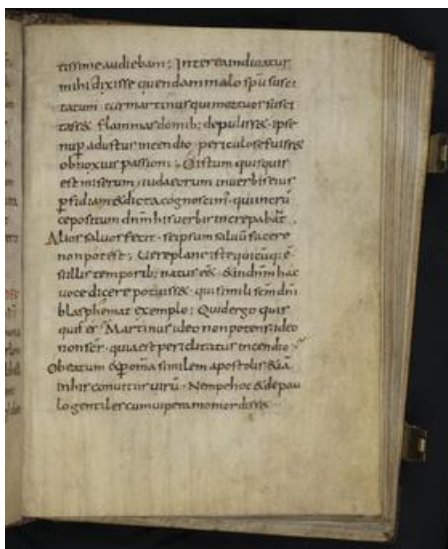 tissime audiebam; Interea indicatur
mihi dixisse quendam malo spu susci
tatum · cur martinus qui mortuos susci
tasset flammas domib; depulisset · ipse
nup adustus incendio · periculose fuisset
obnoxius passioni; O istum quisquis
est miserum · iudaeorum in uerbis eius
pfidiam & dicta cognoscim; qui in cru
ce positum dnm his uerbis increpabāt ·
Alios saluos fecit · seipsum saluū facere
non potest; Uere plane iste quicūq; ē
si illis temporib; natus eēt & in dnm hac
uoce dicere potuisset · qui simili scm dni
blasphemat exemplo; Quid ergo quis
quis es · Martinus ideo non potens · ideo
non scs · quia est periclitatus incendio;
O beatum & p omia similem apostolis etiā
in his conuitiis uirū · Nempe hoc & de pau
lo gentiles cum uipera momordisset